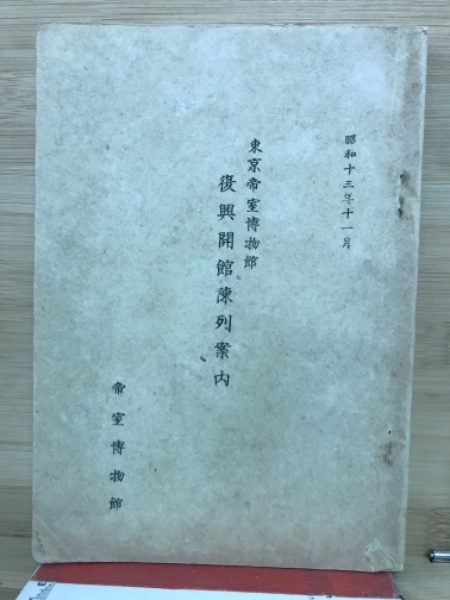 昭和十三年十一月
東京帝室博物館
復興開館陳列案内
帝室博物館